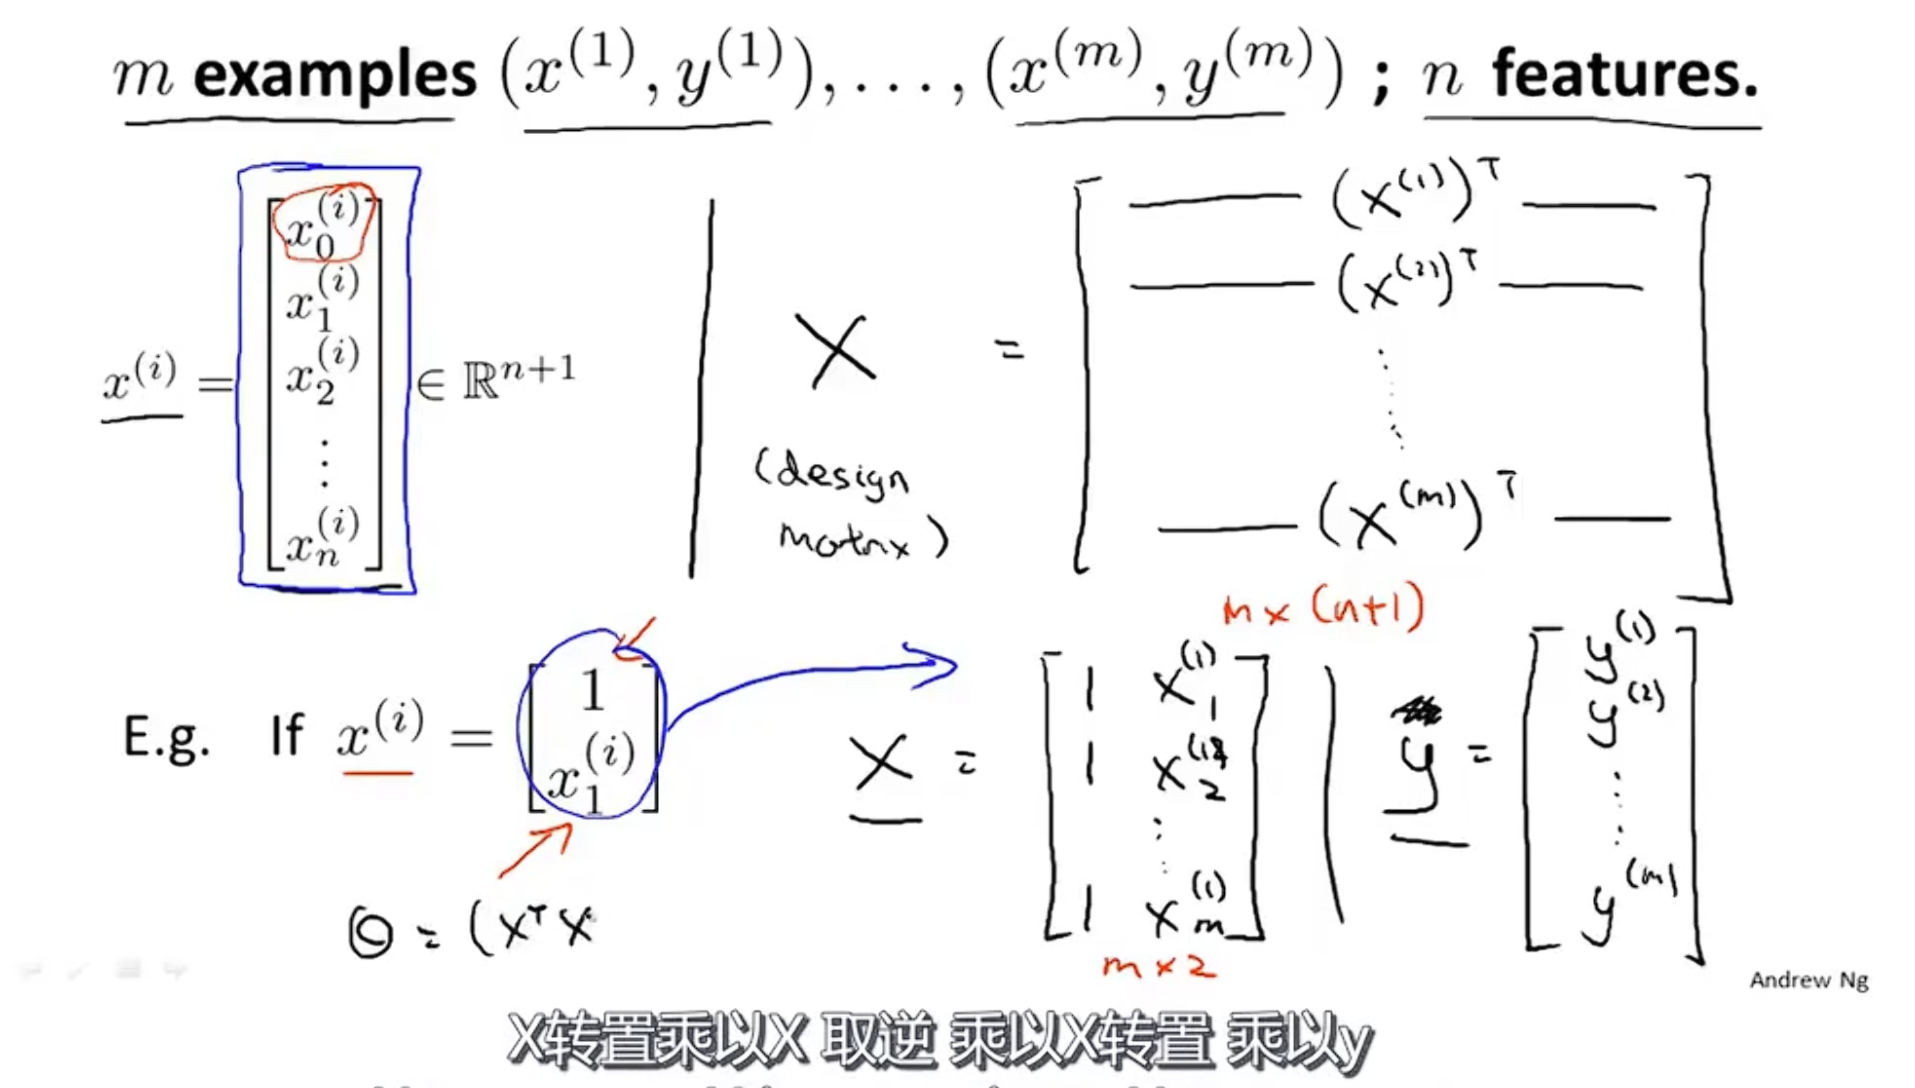 m examples (x^(1), y^(1)), ..., (x^(m), y^(m)) ; n features.
x^(i) = [x_0^(i) x_1^(i) x_2^(i) ⋮ x_n^(i)] ∈ ℝ^{n+1}
X = [— (x^(1))^T — — (x^(2))^T — ⋮ — (x^(m))^T —]
(design
matrix)
m x (n+1)
E.g. If x^(i) = [1 x_1^(i)]
X = [1 x_1^(1) 1 x_2^(1) ⋮ 1 x_m^(1)]
m x 2
y = [y^(1) y^(2) ⋮ y^(m)]
Θ = (X^T X
Andrew Ng
X转置乘以X 取逆 乘以X转置 乘以y